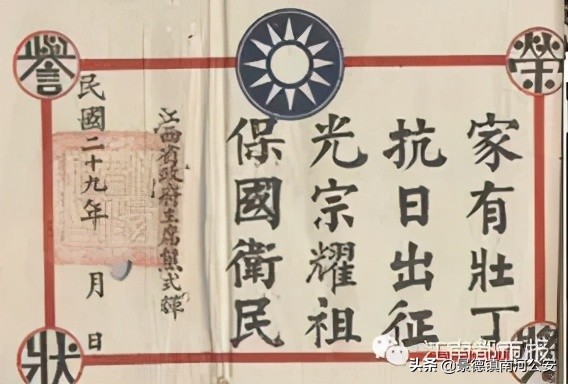 榮
譽
狀
家有壯丁
抗日出征
光宗耀祖
保國衛民
江西省政府主席熊式輝
民國二十九年 月 日
江南都市报
头条 @景德镇南河公安